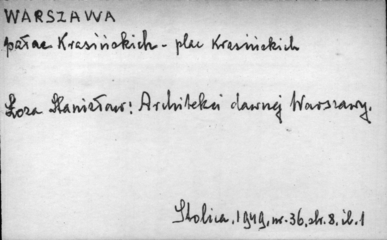 WARSZAWA
pałac Krasińskich - plac Krasińskich
Łoza Stanisław: Architekci dawnej Warszawy.
Stolica, 1949, nr. 36, str. 8, il. 1